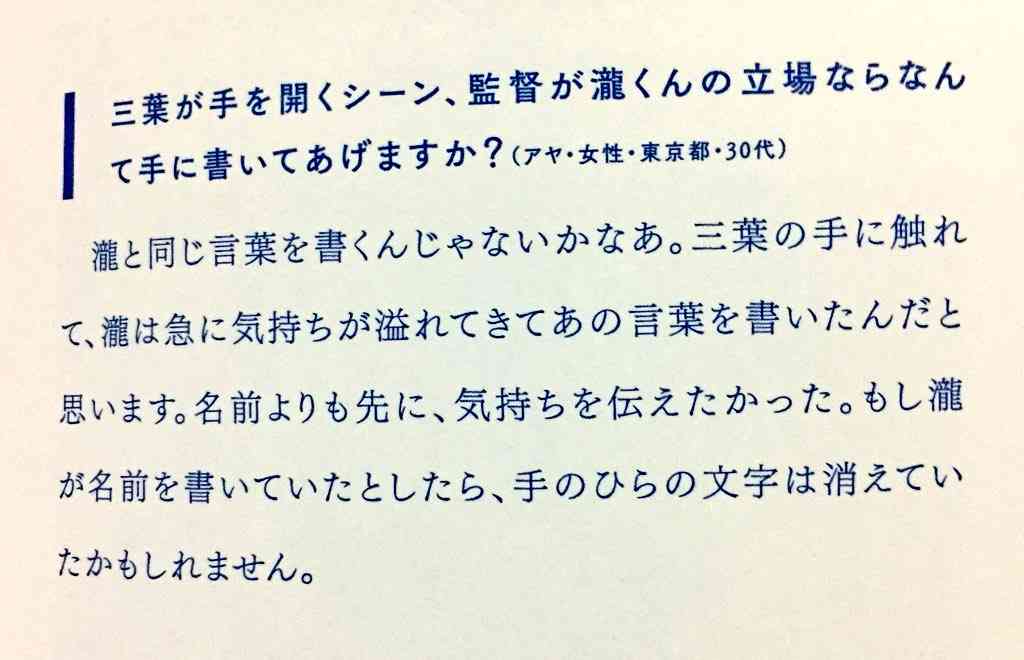 三葉が手を開くシーン、監督が瀧くんの立場ならなん
て手に書いてあげますか？（アヤ・女性・東京都・30代）
瀧と同じ言葉を書くんじゃないかなあ。三葉の手に触れ
て、瀧は急に気持ちが溢れてきてあの言葉を書いたんだと
思います。名前よりも先に、気持ちを伝えたかった。もし瀧
が名前を書いていたとしたら、手のひらの文字は消えてい
たかもしれません。